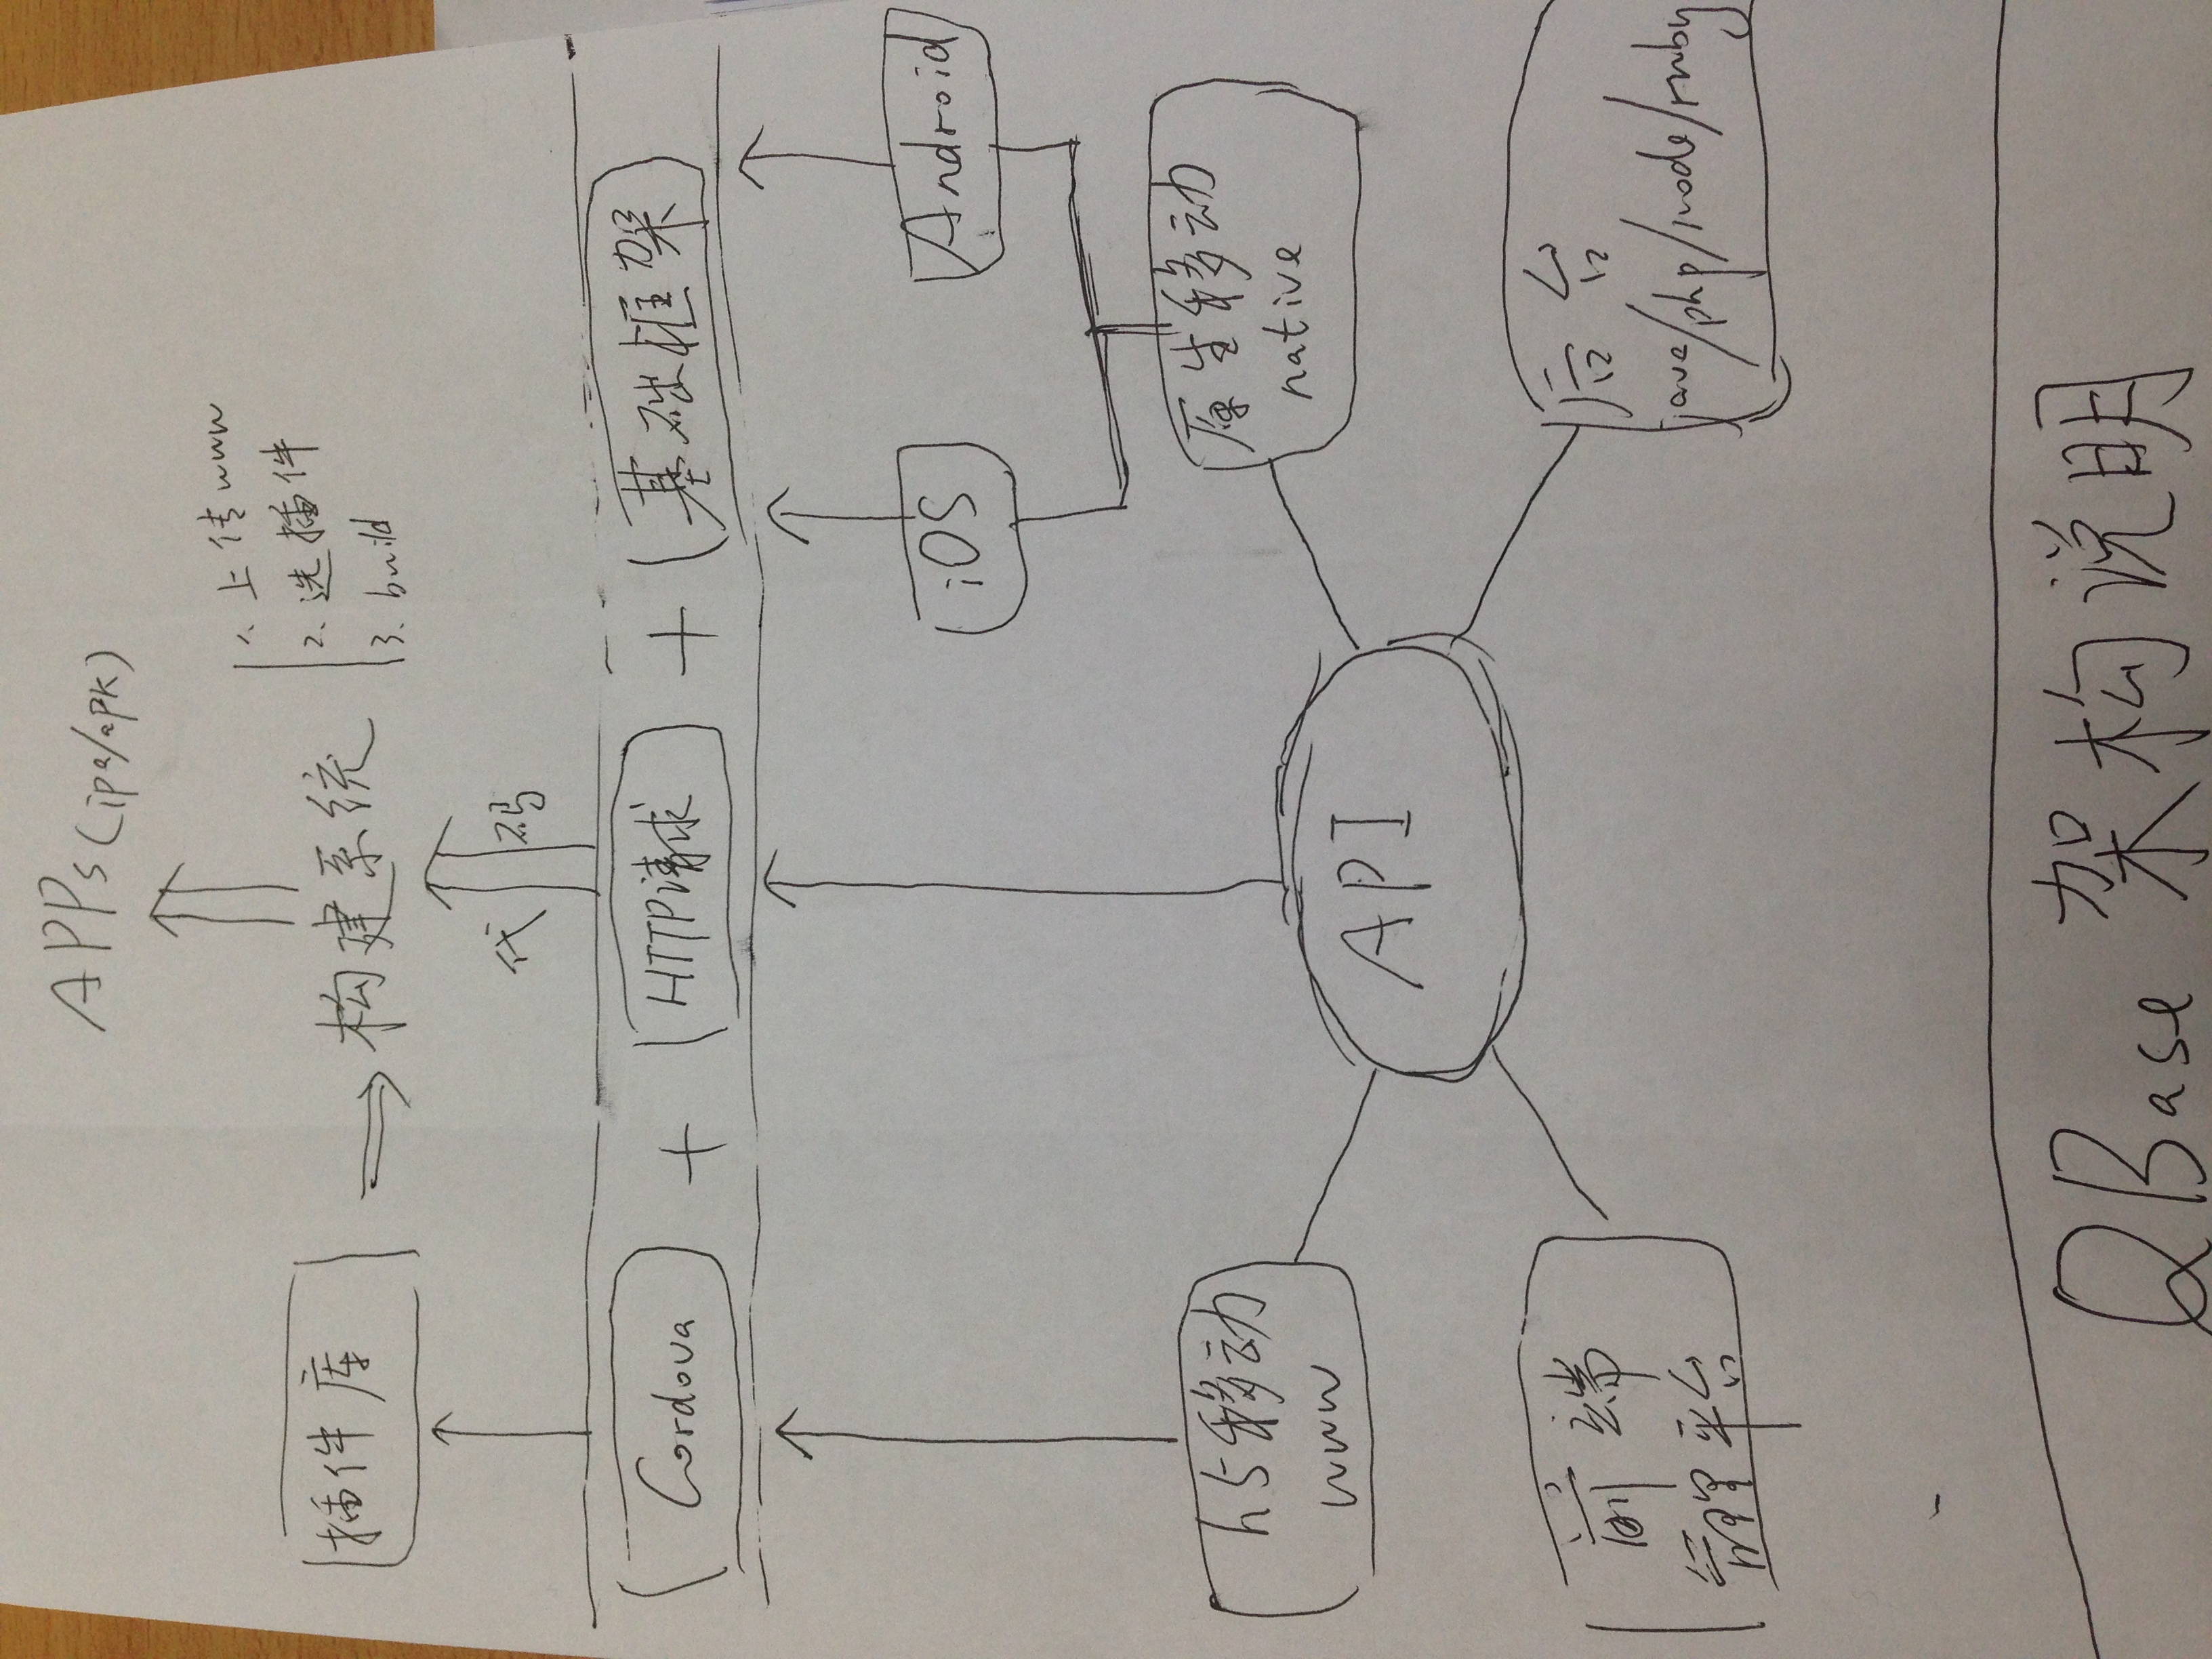 APPs (ipa/apk)
1. 上传www
2. 选插件
3. build
插件库
构建系统
代码
Cordova + HTTP请求 + 基础框架
iOS
Android
h5移动
www
原生移动
native
API
前端
管理平台
后台
java/php/node/ruby
QBase 架构说明